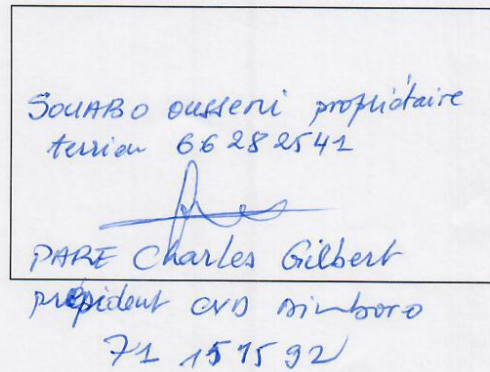 SOUABO Ousseni propriétaire
terrien 66282541
PARE Charles Gilbert
président CVD Dimboro
71 15 75 92